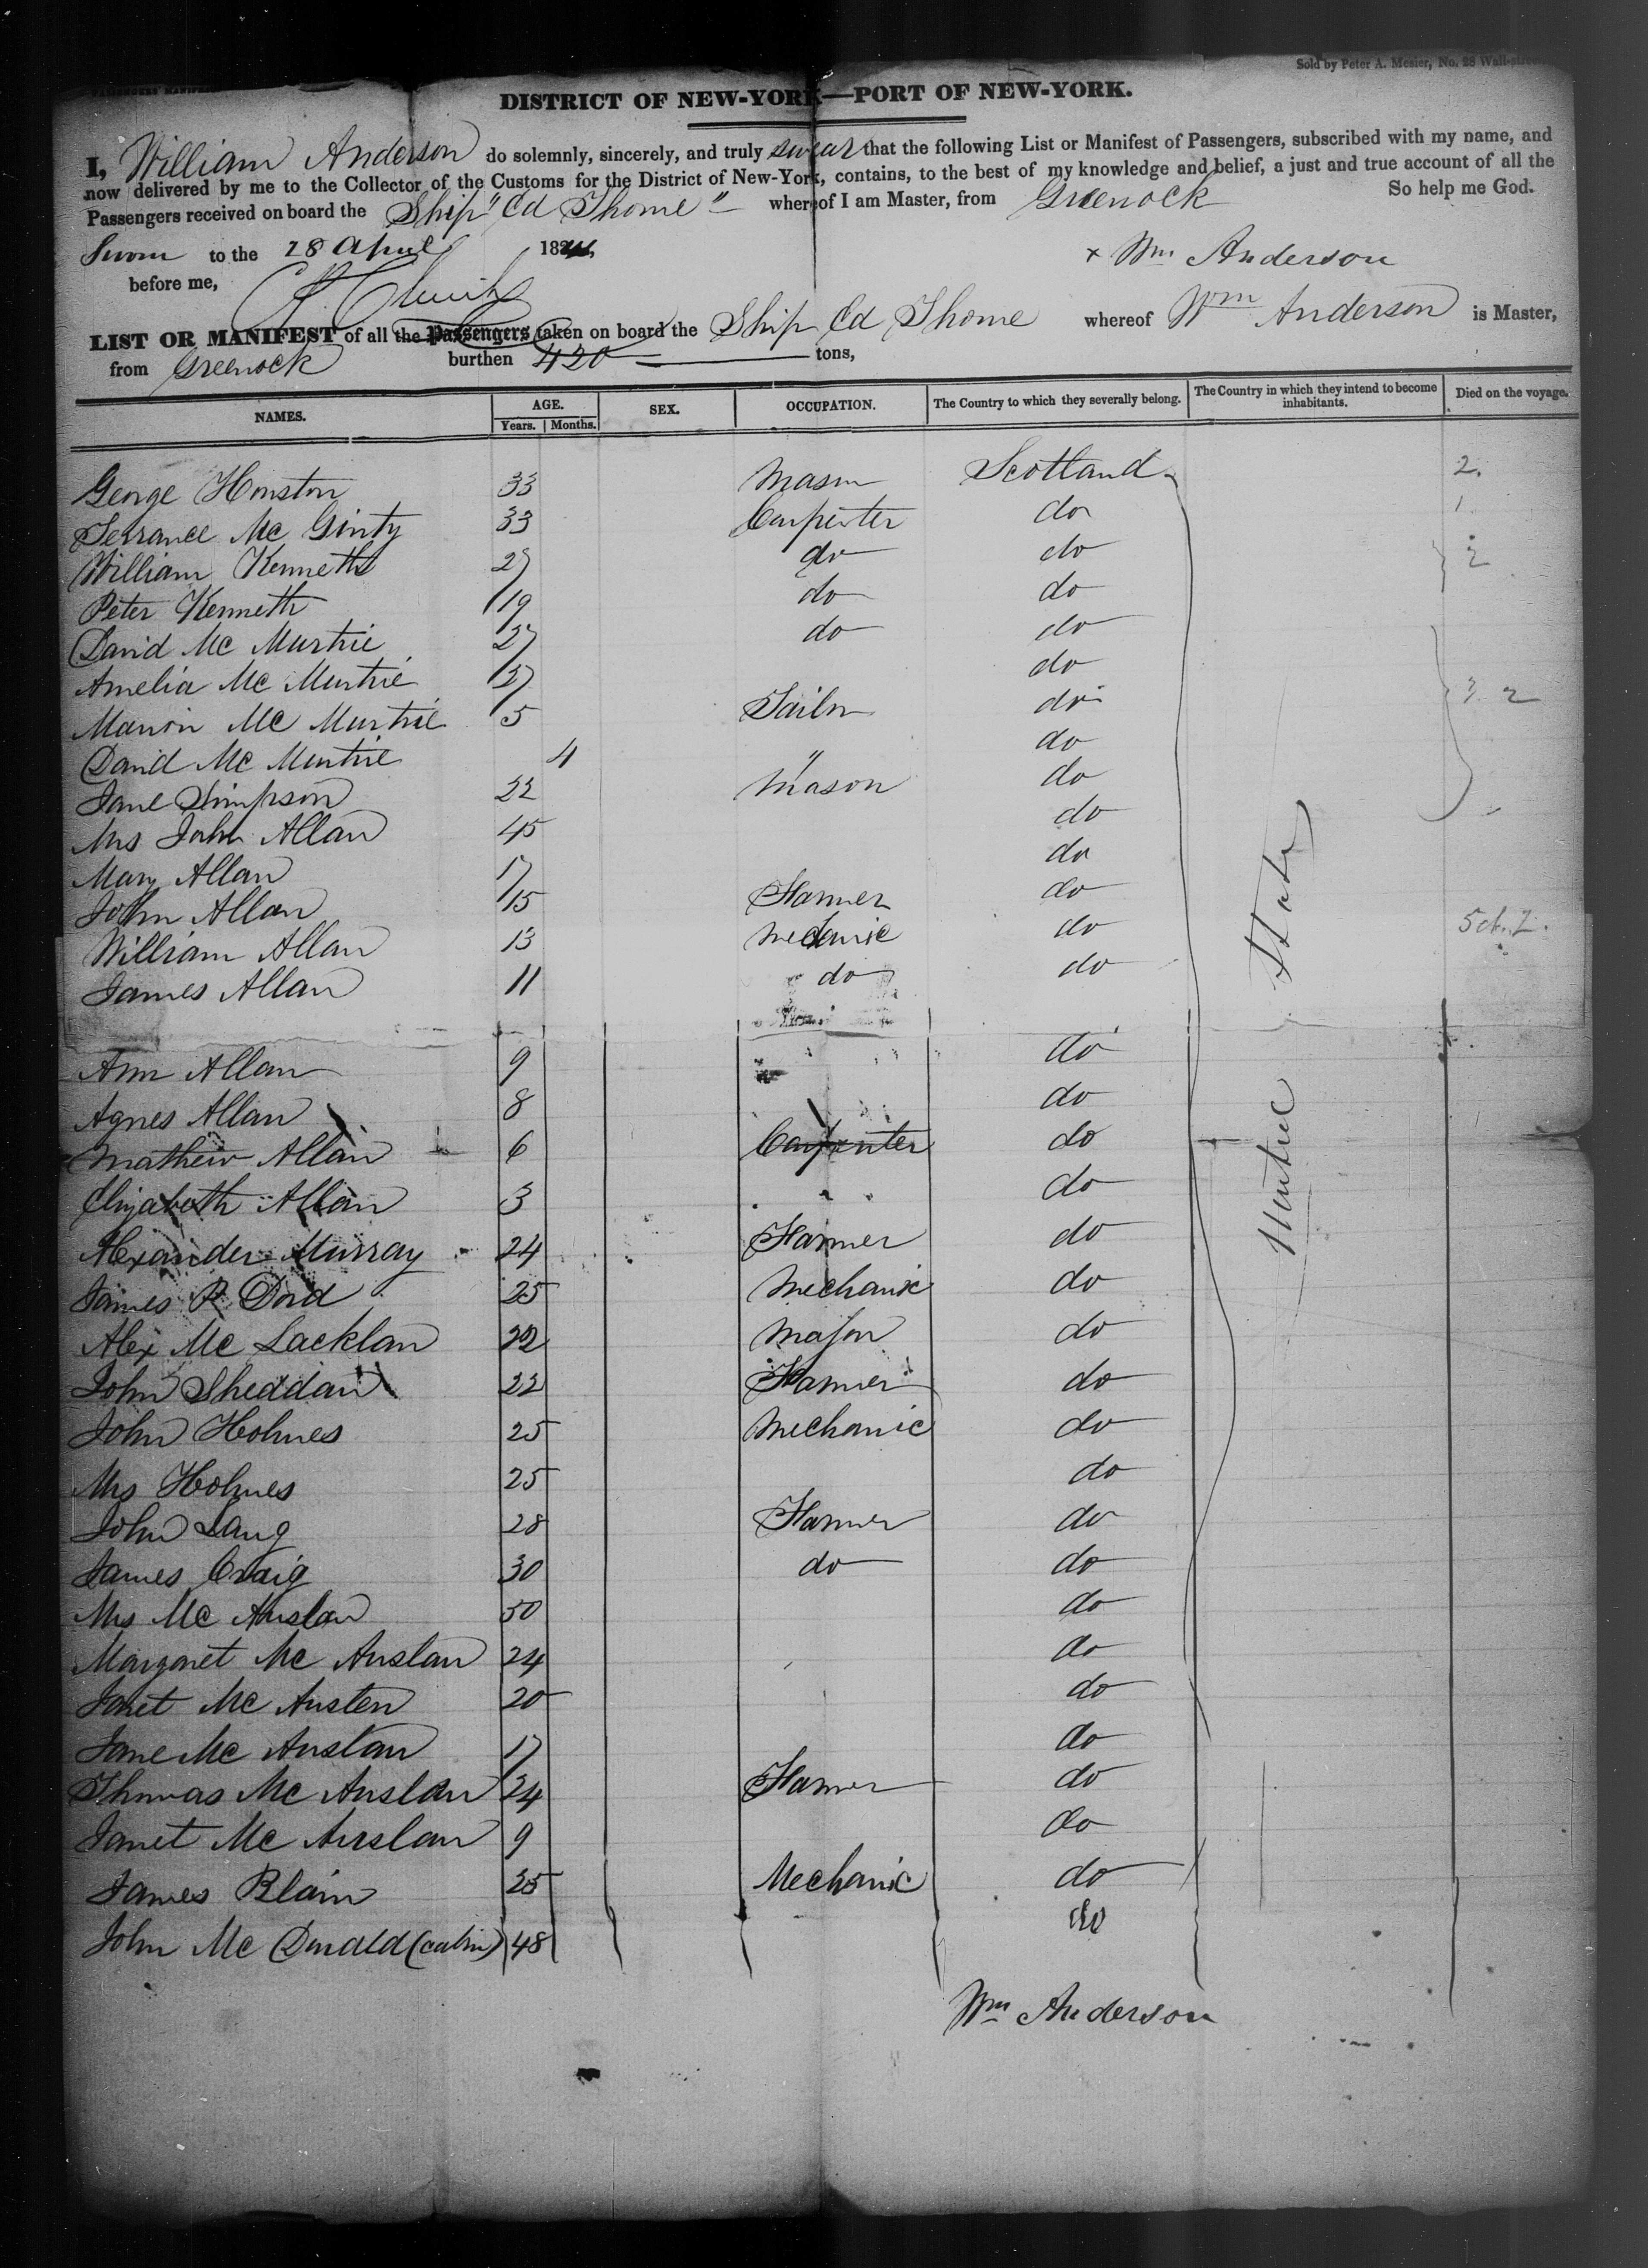 Sold by Peter A. Mesier, No. 28 Wall-street
PASSENGERS MANIFEST
DISTRICT OF NEW-YORK—PORT OF NEW-YORK.
I, William Anderson do solemnly, sincerely, and truly swear that the following List or Manifest of Passengers, subscribed with my name, and
now delivered by me to the Collector of the Customs for the District of New-York, contains, to the best of my knowledge and belief, a just and true account of all the
Passengers received on board the Ship "Cd Thome" whereof I am Master, from Greenock So help me God.
Sworn to the 28 April 184
before me, × Wm Anderson
LIST OR MANIFEST of all the Passengers taken on board the Ship Cd Thome whereof Wm Anderson is Master,
from Greenock burthen 420 tons,
NAMES. AGE. Years. Months. SEX. OCCUPATION. The Country to which they severally belong. The Country in which they intend to become inhabitants. Died on the voyage.
George Houston 33 Mason Scotland 2.
Terrance Mc Ginty 33 Carpenter do 1
William Kenneth 27 do do 2
Peter Kenneth 19 do do
David Mc Murtrie 27 do do
Amelia Mc Murtrie 27 do
Marion Mc Murtrie 5 Tailor do 3 2
David Mc Murtrie 4 " do
Jane Simpson 22 Mason do
Mrs John Allan 45 do
Mary Allan 17 do
John Allan 15 Farmer do
William Allan 13 Mechanic do
James Allan 11 do do
Ann Allan 9 do
Agnes Allan 8 do
Mathew Allan 6 Carpenter do
Elizabeth Allan 3 do
Alexander Murray 24 Farmer do
James R Dord 25 Mechanic do
Alex Mc Lacklan 22 Mason do
John Sheddan 22 Farmer do
John Holmes 25 Mechanic do
Mrs Holmes 25 do
John Lang 28 Farmer do
James Craig 30 do do
Mrs Mc Auslan 50 do
Margaret Mc Auslan 24 do
Janet Mc Austen 20 do
Jane Mc Auslan 17 do
Thomas Mc Auslan 24 Farmer do
Janet Mc Auslan 9 do
James Blain 25 Mechanic do
John Mc Donald (cabin) 48 do
Wm Anderson